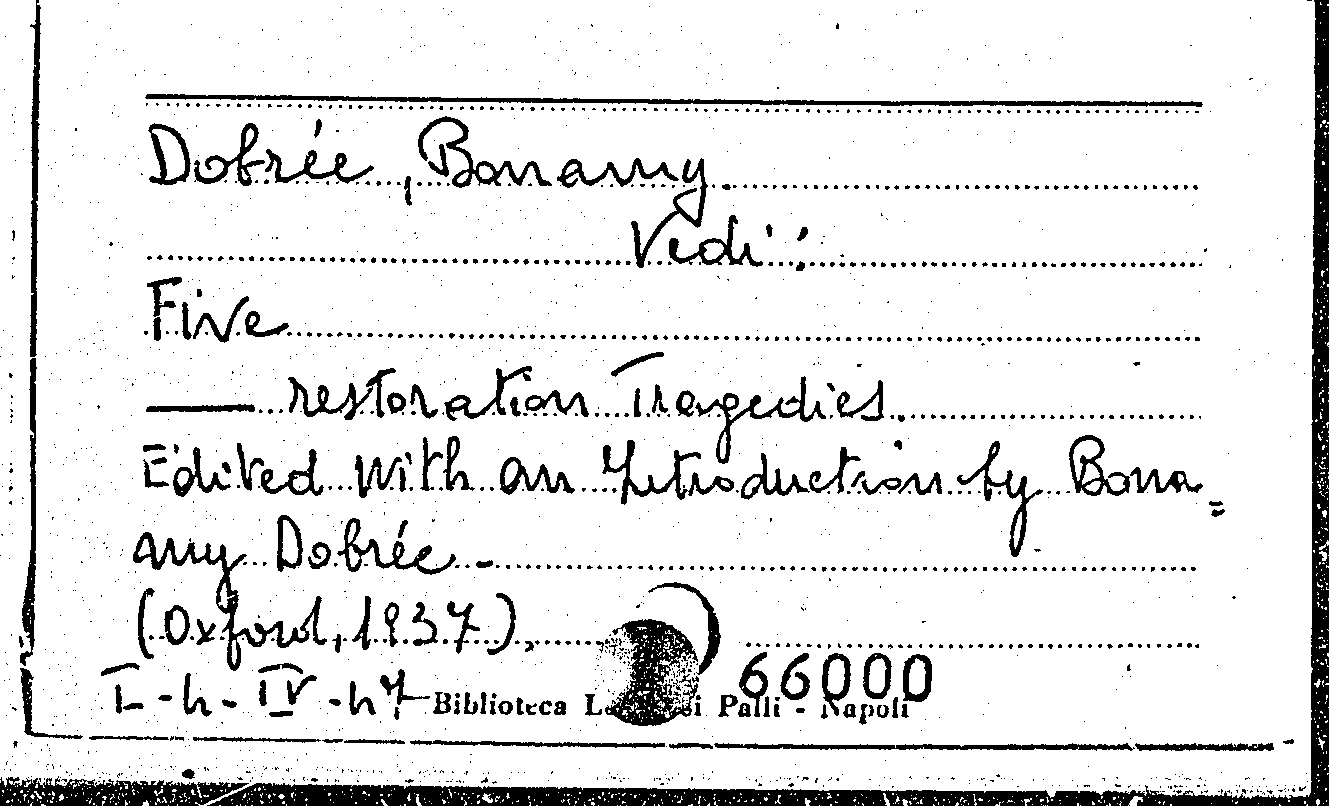 Dobrée, Bonamy.
Vedi:
Five
—— restoration Tragedies.
Edited with an Introduction by Bona=
amy Dobrée. -
(Oxford, 1937),
66000
I - h - IV - h7 Biblioteca Palli - Napoli